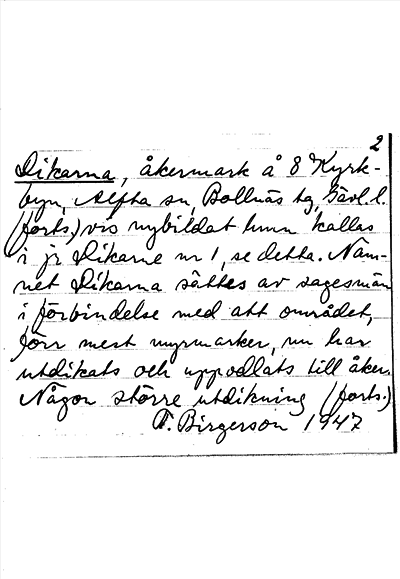 2
Dikarna, åkermark å 8 Kyrk-
byn, Alfta sn, Bollnäs tg, Gävl. l.
(forts.) vis nybildat hmn kallas
i jr Dikarne nr 1, se detta. Nam-
net Dikarna sättes av sagesmän
i förbindelse med att området,
förr mest myrmarker, nu har
utdikats och uppodlats till åker.
Någon större utdikning (forts.)
T. Birgerson 1947